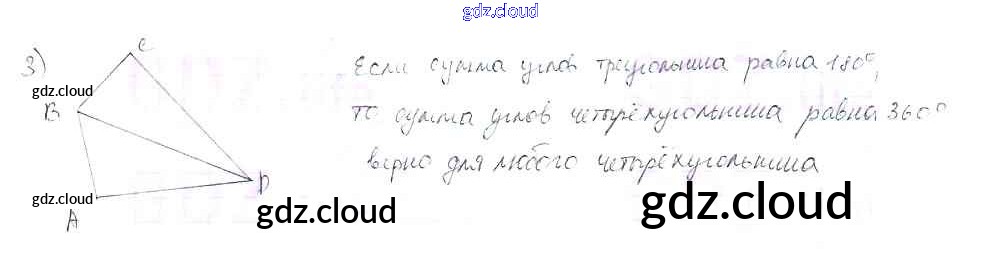 gdz.cloud
3)
C
Если сумма углов треугольника равна 180°,
gdz.cloud
B
то сумма углов четырёхугольника равна 360°
верно для любого четырёхугольника
D
gdz.cloud
A
gdz.cloud
gdz.cloud